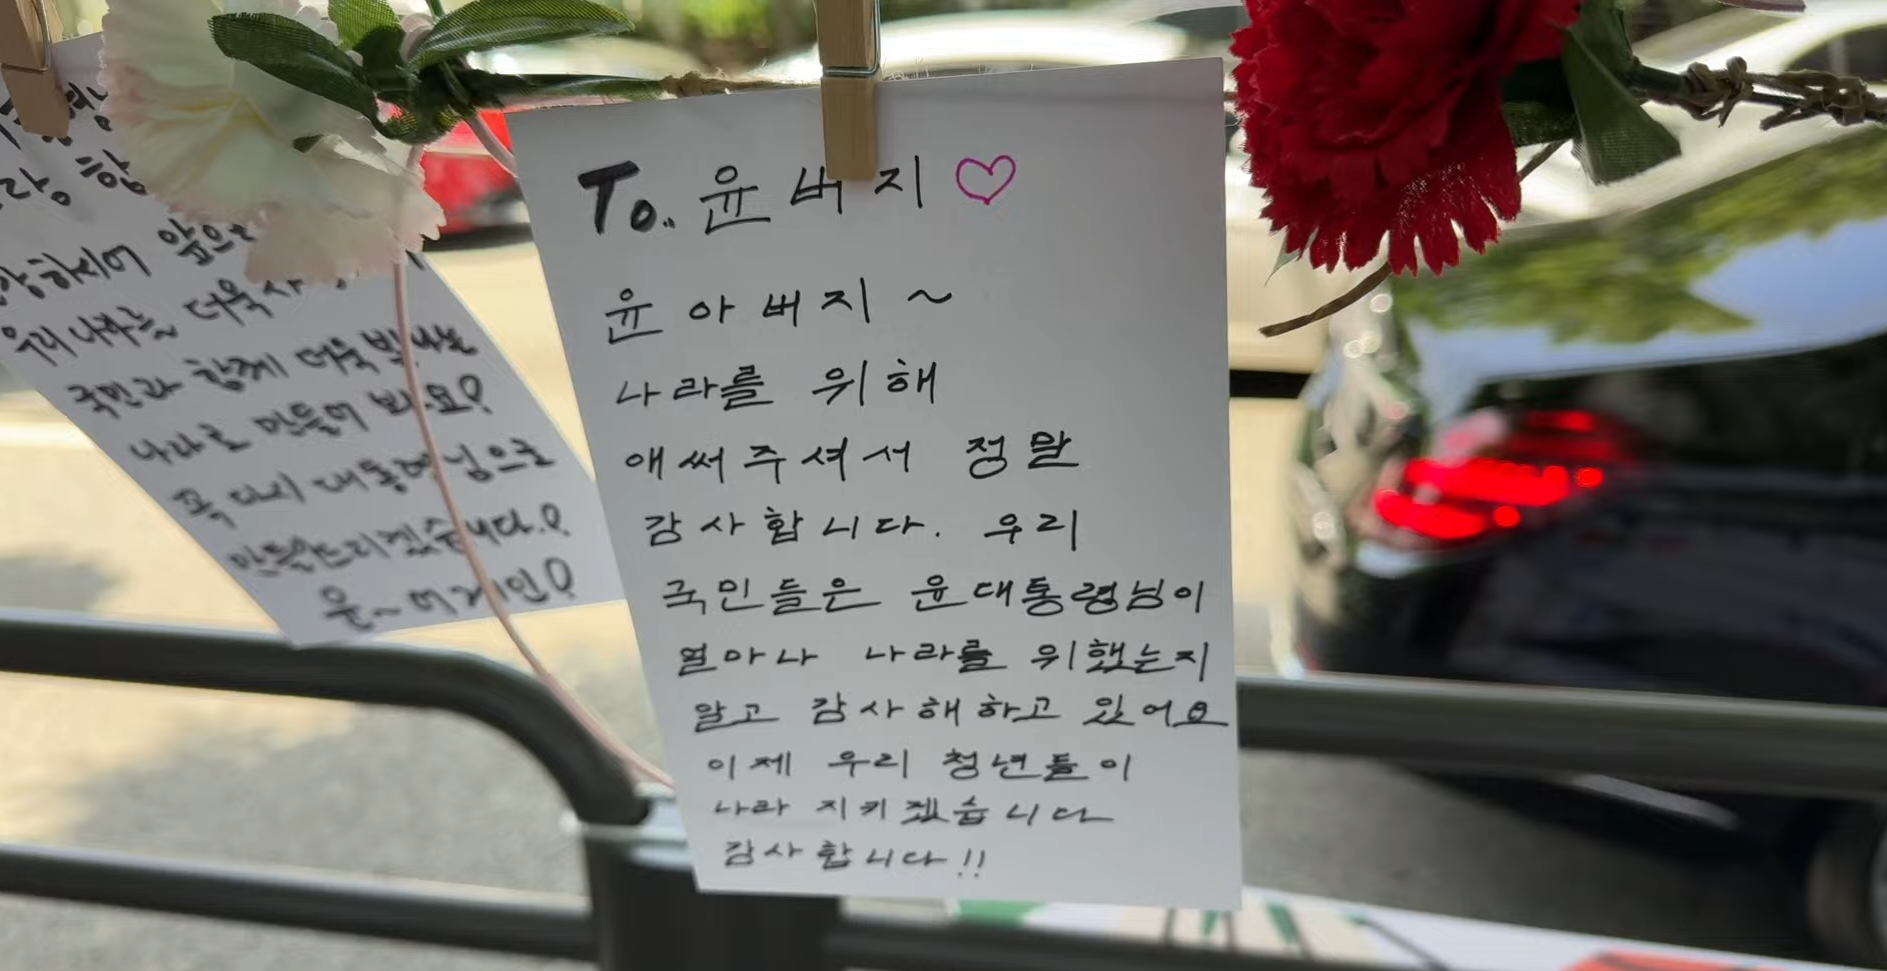 To. 윤버지♡
윤아버지~
나라를 위해
애써주셔서 정말
감사합니다. 우리
국민들은 윤대통령님이
얼마나 나라를 위했는지
알고 감사해하고 있어요
이제 우리 청년들이
나라 지키겠습니다
감사합니다!!
우리나라는 더욱
국민과 함께 더욱
나라로 만들어 봐요!
꼭 다시 대통령님으로
만들어드리겠습니다.!
윤~어게인!